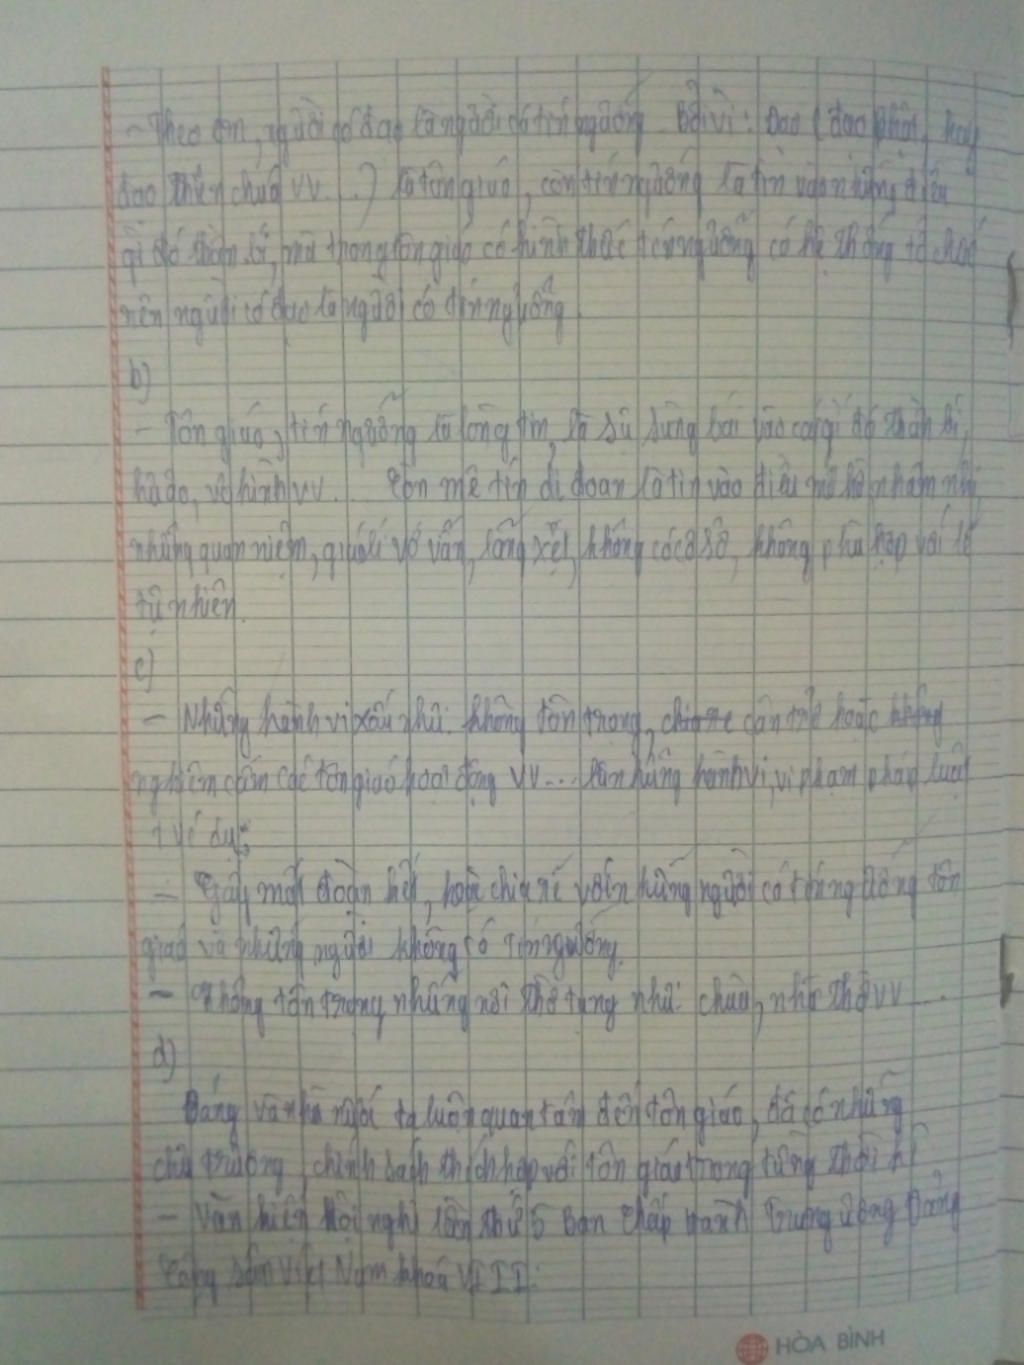 - Theo em, người có đạo là người có tín ngưỡng. Bởi vì: Đạo (đạo phật, hay
đạo thiên chúa vv...) là tôn giáo, còn tín ngưỡng là tin vào những điều
gì đó thần bí, mà trong tôn giáo có hình thức tín ngưỡng có hệ thống tổ chức
nên người có đạo là người có tín ngưỡng.
b)
- Tôn giáo, tín ngưỡng là lòng tin, là sự sùng bái vào cái gì đó thần bí,
hư ảo, vô hình vv... Còn mê tín dị đoan là tin vào điều mơ hồ nhảm nhí
những quan niệm, quái vớ vẩn, không có cơ sở, không phù hợp với lẽ
tự nhiên.
c)
- Những hành vi xấu như: không tôn trọng, chia rẽ cản trở hoặc
nghiêm cấm các tôn giáo hoạt động vv... là những hành vi, vi phạm pháp luật
+ Ví dụ:
- Gây mất đoàn kết, hoặc chia rẽ với những người có tín ngưỡng tôn
giáo và những người không có tín ngưỡng.
- Không tôn trọng những nơi thờ tụng như: chùa, nhà thờ vv...
d)
Đảng và nhà nước ta luôn quan tâm đến tôn giáo, đã có những
chủ trương, chính sách thích hợp với tôn giáo trong từng thời kì
- Văn kiện Hội nghị lần thứ 5 Ban Chấp hành Trung ương Đảng
Cộng sản Việt Nam khoá VIII:
HÒA BÌNH